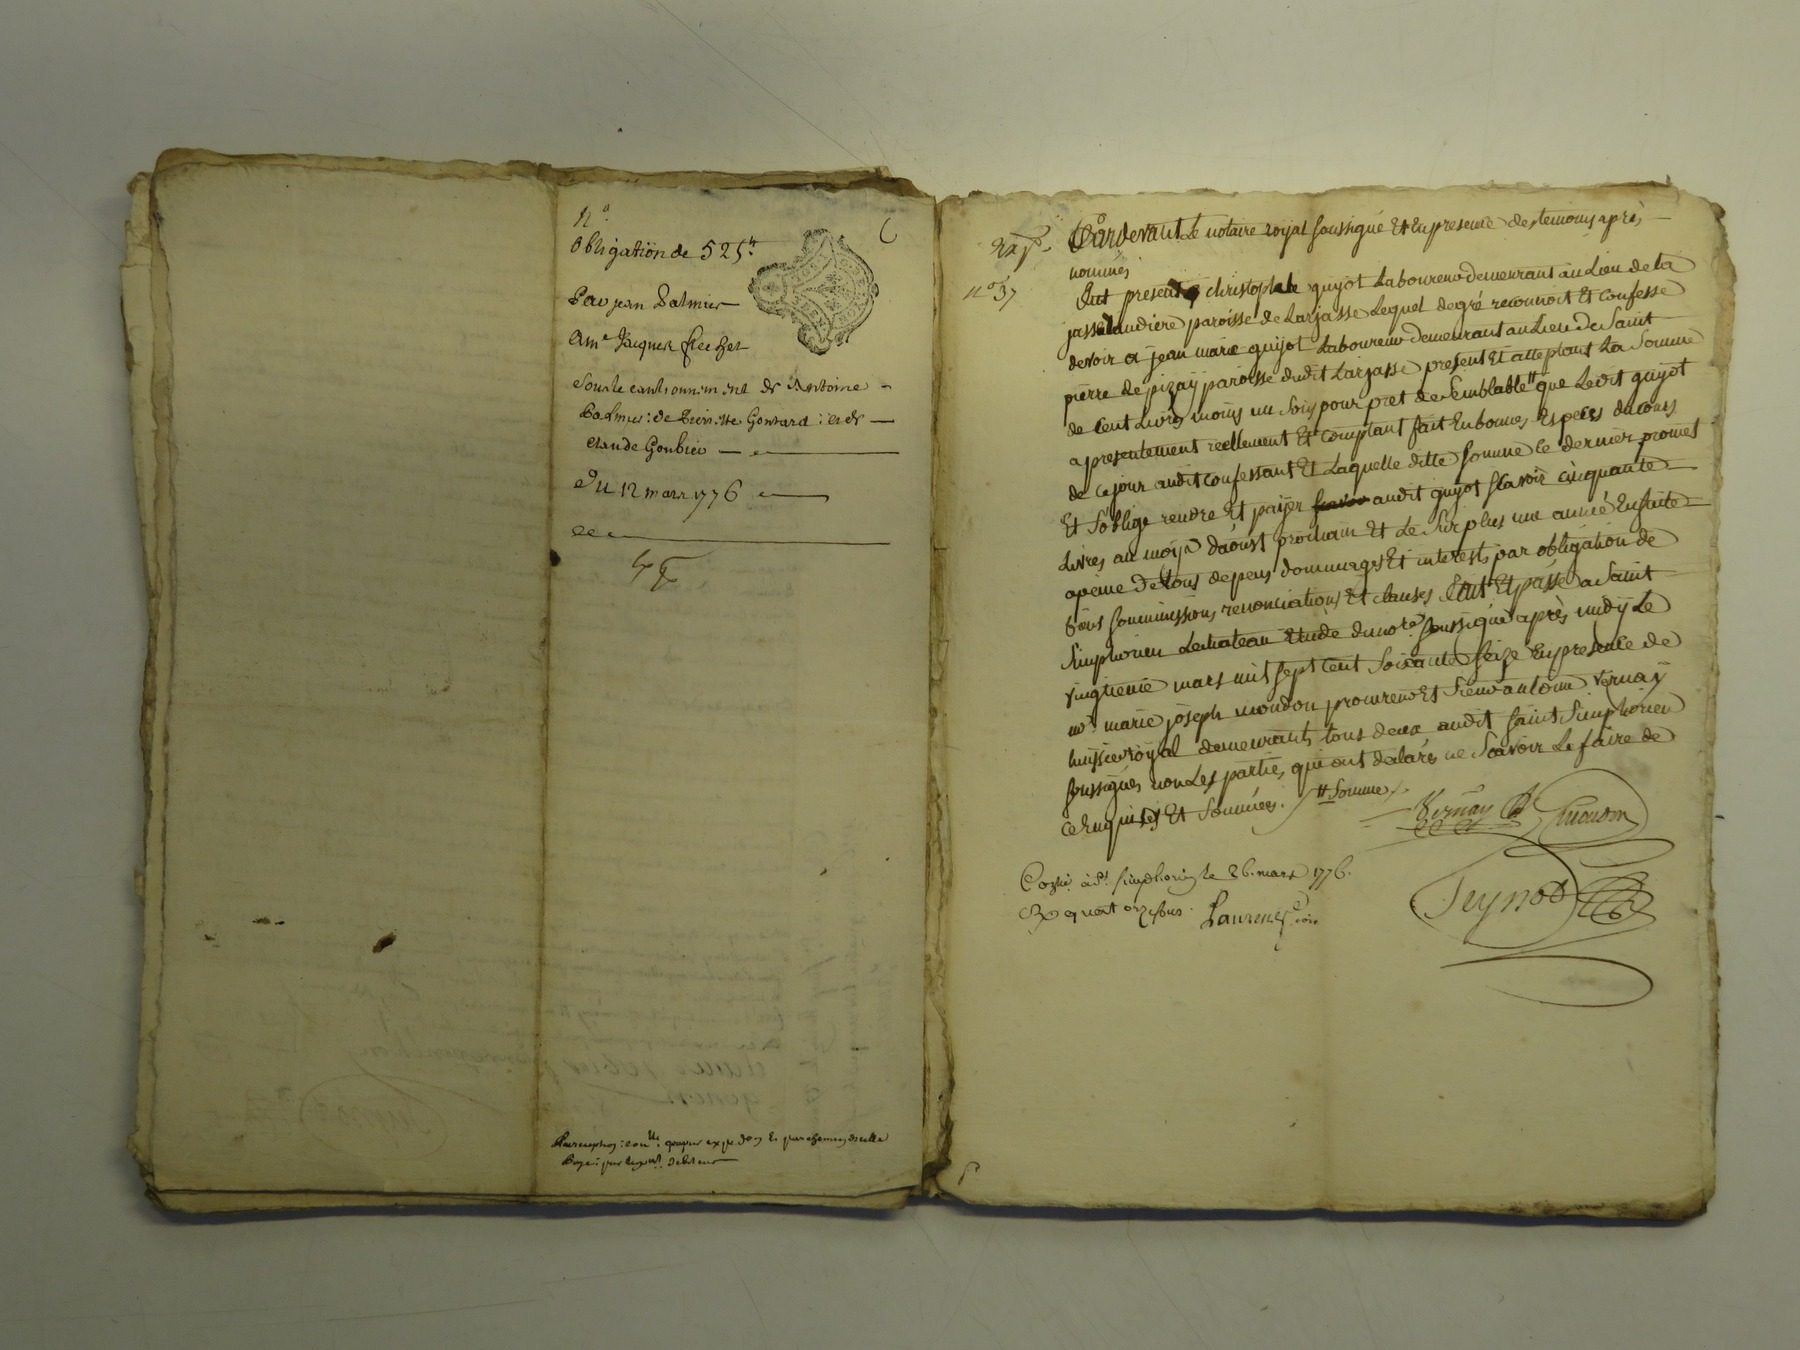 n°.
obligation de 525tt
Par jean Palmier
A me Jacques
Sous le cautionnement de Antoine
Palmier : de Pierrette Gontard : et de
Claude Goubier
Du 12 mars 1776
debiteur
Exp.
n° 37
Pardevant Le notaire royal soussigné Et En presence des temoins après
nommés
Fut present christophle guyot Laboureur demeurant au Lieu de la
jasselandiere paroisse de Larjasse Lequel de gré reconnoit Et confesse
devoir a jean marie guyot Laboureur demeurant au Lieu de Saint
pierre de pizaÿ paroisse dudit Larjasse present Et acceptant La Somme
de Cent Livres moins un Sols pour pret de Semblable tt que Ledit guyot
a presentement reellement Et comptant fait En bonnes Especes du cours
de ce jour audit confessant Et Laquelle ditte somme ce dernier promet
Et S'oblige rendre Et païer audit guyot scavoir cinquante
Livres au mois d'aoust prochain Et Le Surplus une année Ensuite
a peine De tous depens dommages Et interests par obligation de
biens soumissions renonciations Et clauses fait Et passé a Saint
Simphorien Lechateau Etude du not.e soussigné après midÿ Le
vingtieme mars mil sept cent Soixante Seize En presence de
me marie joseph moudon procureur Et Sieur antoine vernaÿ
huissier royal demeurants tous deux audit Saint Simphorien
soussignés non Les parties qui ont declarés ne Scavoir Le faire de
ce Enquises Et Sommées. tt Somme
Vernay
Seynod
à St simphorien le 26. mars 1776.